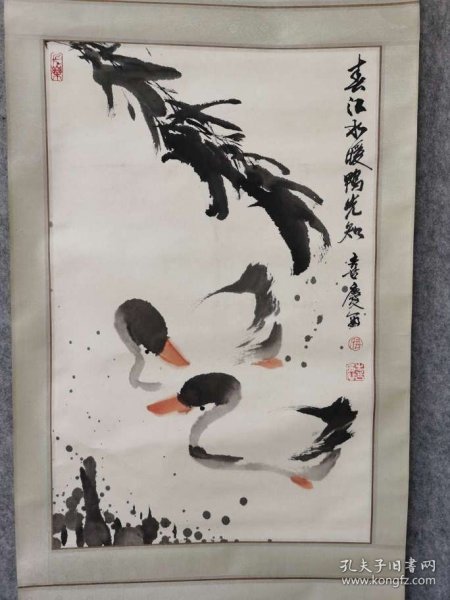 春江水暖鸭先知
喜庆写
孔夫子旧书网
www.kongfz.com